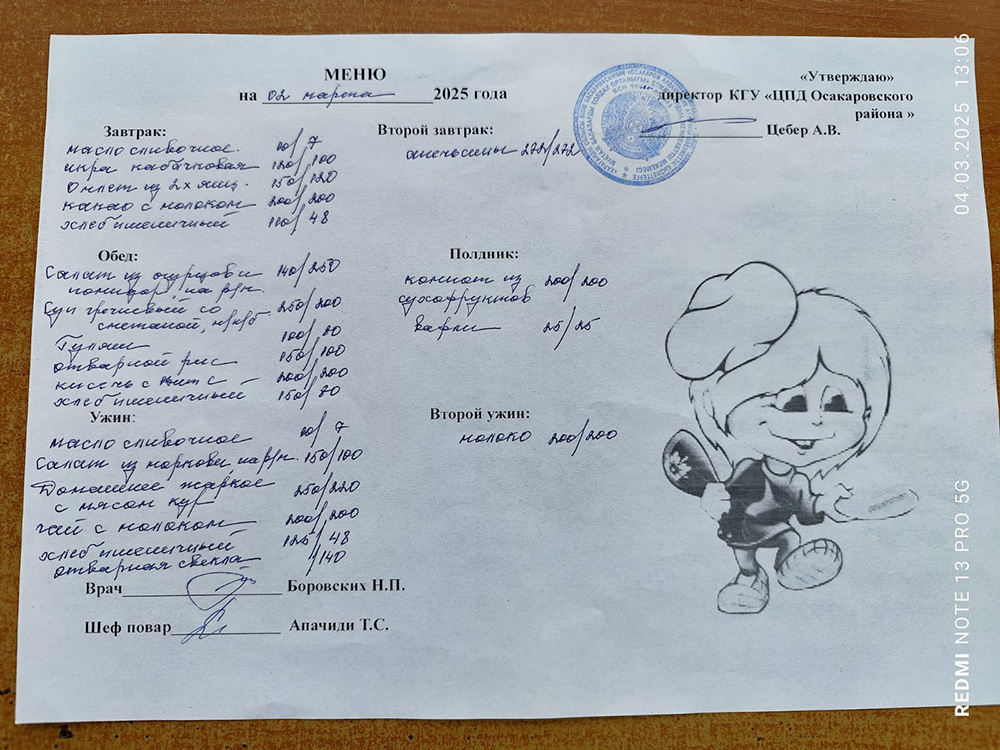 МЕНЮ
на 02 марта 2025 года
«Утверждаю»
директор КГУ «ЦПД Осакаровского
района »
Цебер А.В.
Завтрак:
масло сливочное. 10/7
икра кабачковая 120/100
Омлет из 2х яиц. 150/120
какао с молоком 200/200
хлеб пшеничный 110/48
Второй завтрак:
апельсины 272/272
Обед:
Салат из огурцов и 140/250
помидор, на р/м.
Суп гречневый со 250/200
сметаной, м/к/б
Гуляш 100/80
отварной рис 150/100
кисель с вит с 200/200
хлеб пшеничный 150/80
Полдник:
компот из 200/200
сухофруктов
вафли 25/25
Ужин:
масло сливочное 10/7
Салат из моркови, на р/м. 150/100
Домашнее жаркое
с мясом кур 250/220
чай с молоком 200/200
хлеб пшеничный 125/48
отварная свекла /140
Второй ужин:
молоко 200/200
Врач Боровских Н.П.
Шеф повар Апачиди Т.С.
04.03.2025 13:06
REDMI NOTE 13 PRO 5G